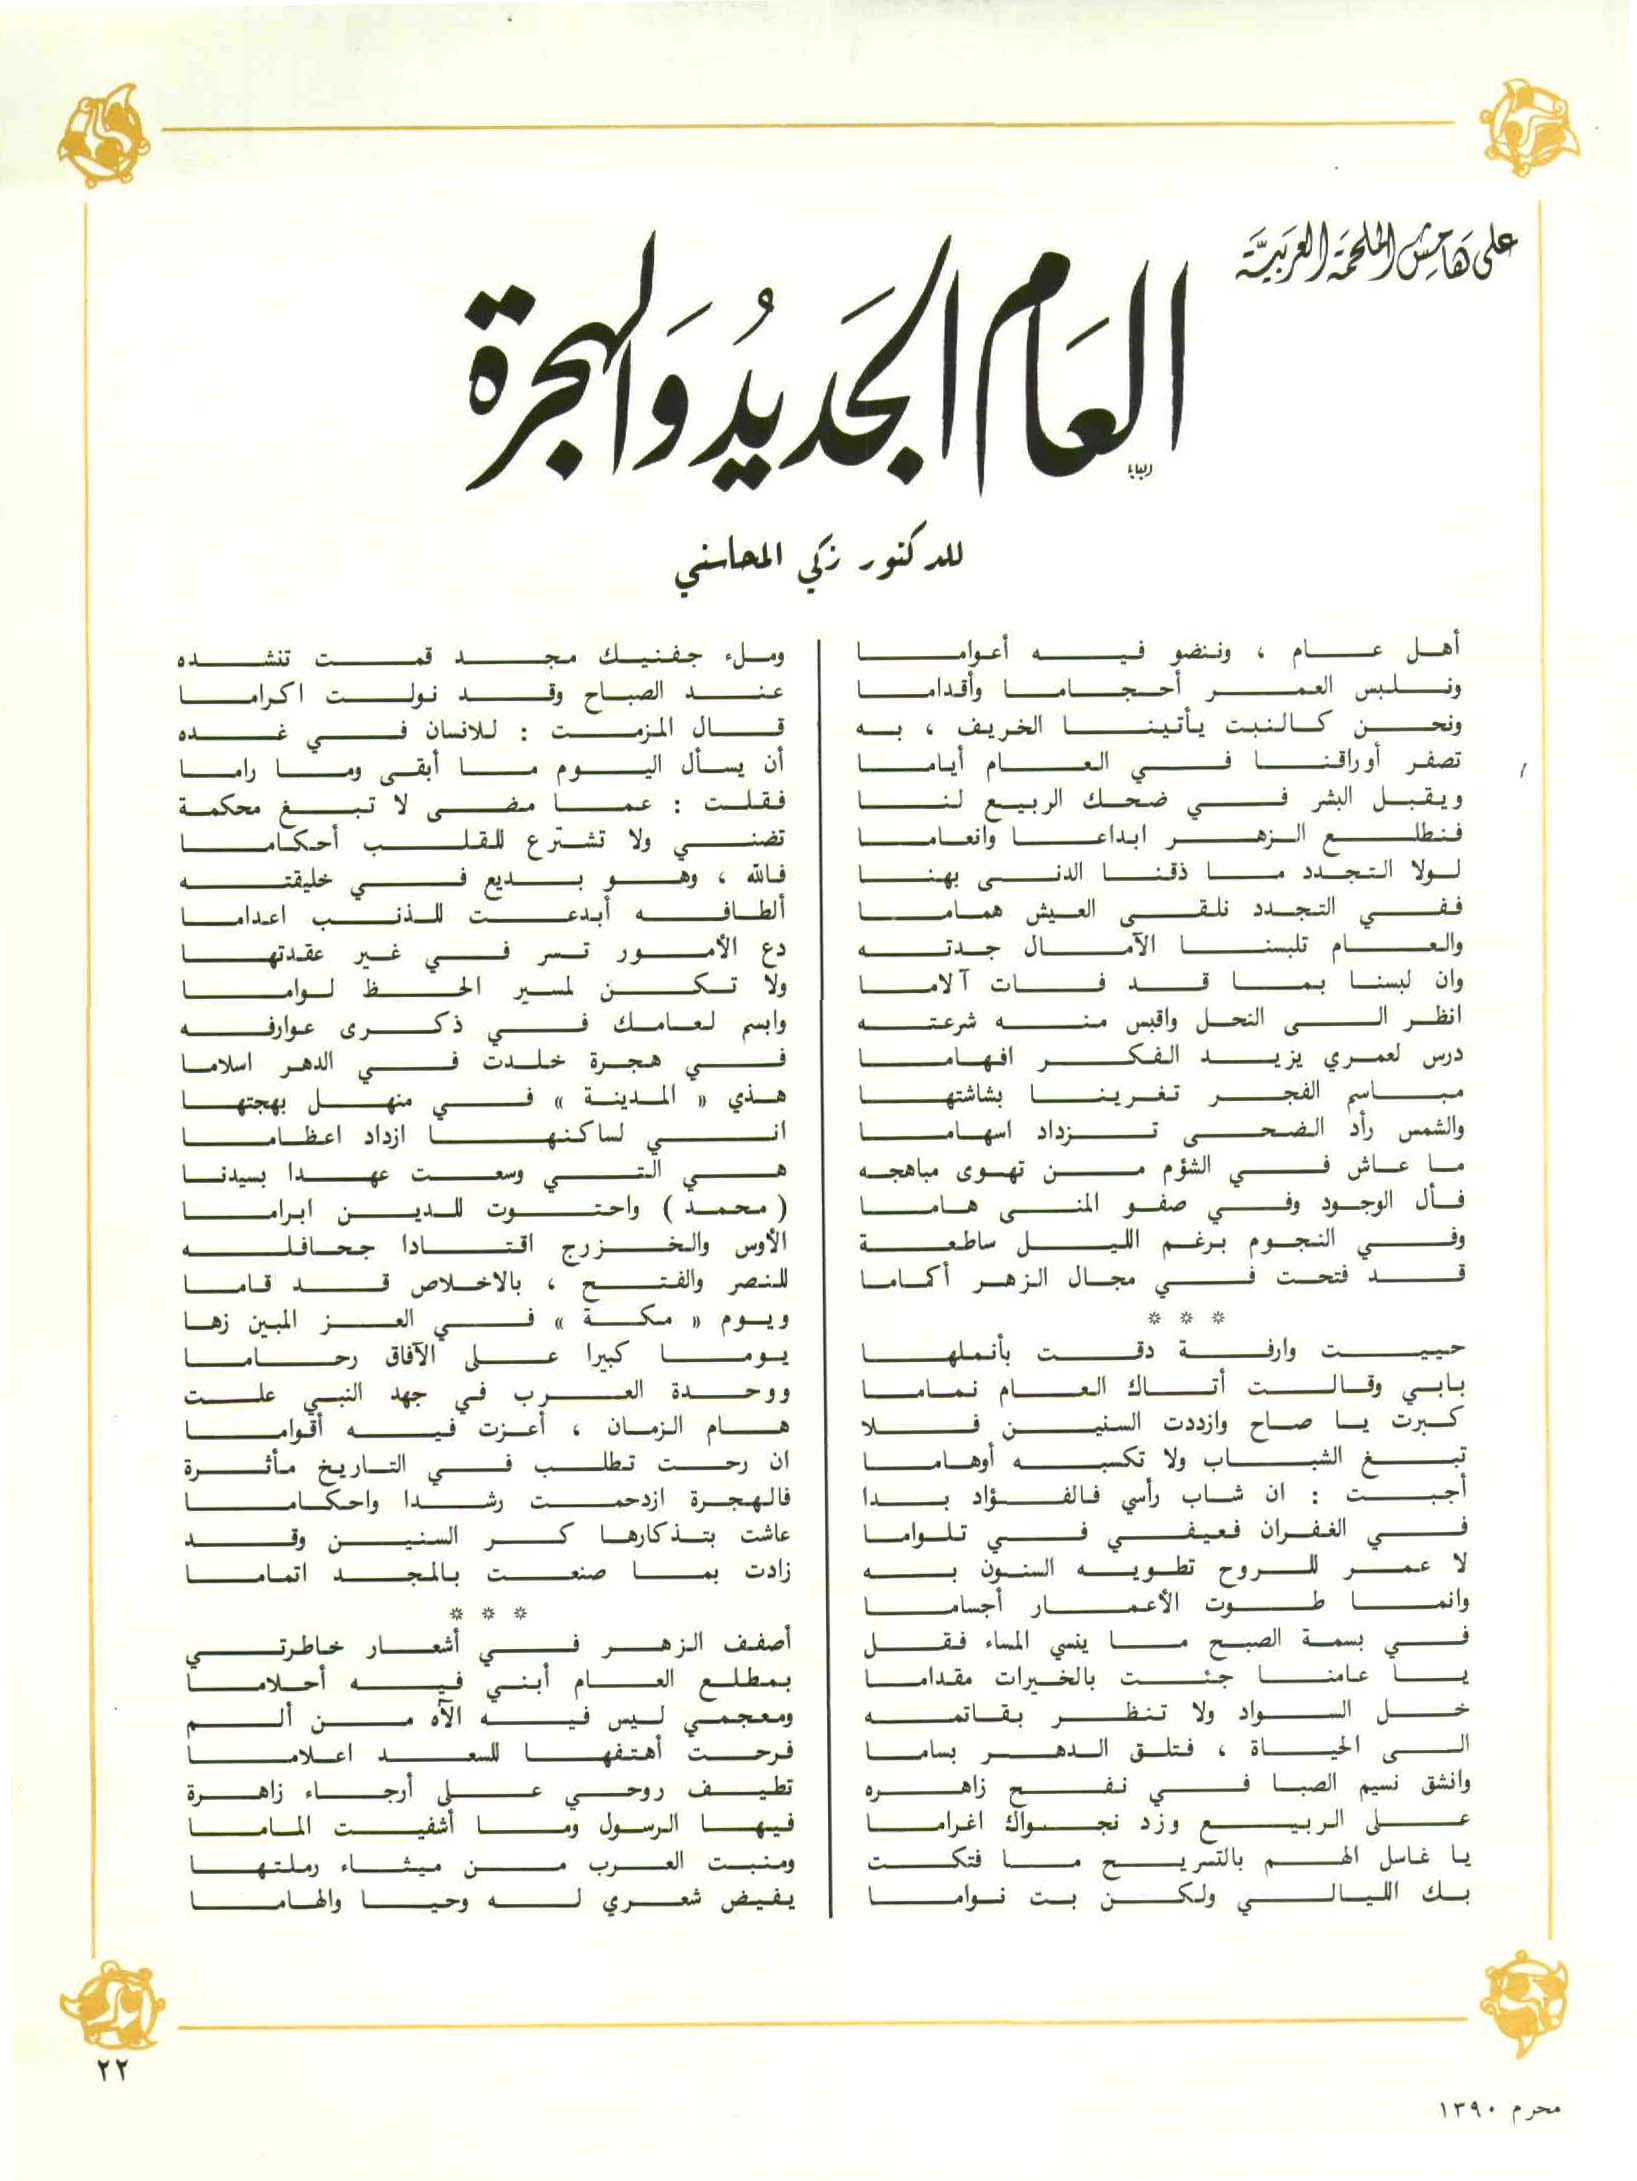 على هامش الملحمة العربية
العام الجديد والهجرة
للدكتور زكي المحاسني
أهل عام ، وننضو فيه أعواما
ونلبس العمر أحجاما وأقداما
ونحن كالنبت يأتينا الخريف ، به
تصفر أوراقنا في العام أياما
ويقبل البشر في ضحك الربيع لنا
فنطلع الزهر ابداعا وانعاما
لولا التجدد ما ذقنا الدنى بهنا
ففي التجدد نلقى العيش همساما
والعام تلبسنا الآمال جدته
وان لبسنا بما قد فات آلاما
انظر الى النحل واقبس منه شرعته
درس لعمري يزيد الفكر افهاما
مباسم الفجر تغرينا بشاشتها
والشمس رأد الضحى تزداد اسهاما
ما عاش في الشؤم من تهوى مباهجه
فأل الوجود وفي صفو المنى هاما
وفي النجوم برغم الليل ساطعة
قد فتحت في مجال الزهر أكماما
* * *
حييت وارفة دقت بأنملها
بابي وقالت أتاك العام نماما
كبرت يا صاح وازددت السنين فلا
تبغ الشباب ولا تكسبه أوهاما
أجبت : ان شاب رأسي فالفؤاد بدا
في الغفران فعيفي في تلواما
لا عمر للروح تطويه السنون به
وانما طوت الأعمار أجساما
في بسمة الصبح ما ينسي المساء فقل
يا عامنا جئت بالخيرات مقداما
خل السواد ولا تنظر بقاتمه
الى الحياة ، فتلق الدهر بساما
وانشق نسيم الصبا في نفح زاهره
على الربيع وزد نجواك اغراما
يا غاسل الهم بالتسريح ما فتكت
بك الليالي ولكن بت نواما
وملء جفنيك مجد قمت تنشده
عند الصباح وقد نولت اكراما
قال المزمت : للانسان في غده
أن يسأل اليوم ما أبقى وما راما
فقلت : عما مضى لا تبغ محكمة
تضني ولا تشترع للقلب أحكاما
فالله ، وهو بديع في خليقته
ألطافه أبدعت للذنب اعداما
دع الأمور تسر في غير عقدتها
ولا تكن لمسير الحظ لواما
وابسم لعامك في ذكرى عوارفه
في هجرة خلدت في الدهر اسلاما
هذي « المدينة » في منهل بهجتها
اني لساكنها ازداد اعظاما
هي التي وسعت عهدا بسيدنا
( محمد ) واحتوت للدين ابراما
الأوس والخزرج اقتادا جحافله
للنصر والفتح ، بالاخلاص قد قاما
ويوم « مكة » في العز المبين زها
يوما كبيرا على الآفاق رحاما
ووحدة العرب في جهد النبي علت
هام الزمان ، أعزت فيه أقواما
ان رحت تطلب في التاريخ مأثرة
فالهجرة ازدحمت رشدا واحكاما
عاشت بتذكارها كر السنين وقد
زادت بما صنعت بالمجد اتماما
* * *
أصفف الزهر في أشعار خاطرتي
بمطلع العام أبني فيه أحلاما
ومعجمي ليس فيه الآه من ألم
فرحت أهتفها للسعد اعلاما
تطيف روحي على أرجاء زاهرة
فيها الرسول وما أشفيت الماما
ومنبت العرب من ميثاء رملتها
يفيض شعري له وحيا والهاما
٢٢
محرم ١٣٩٠